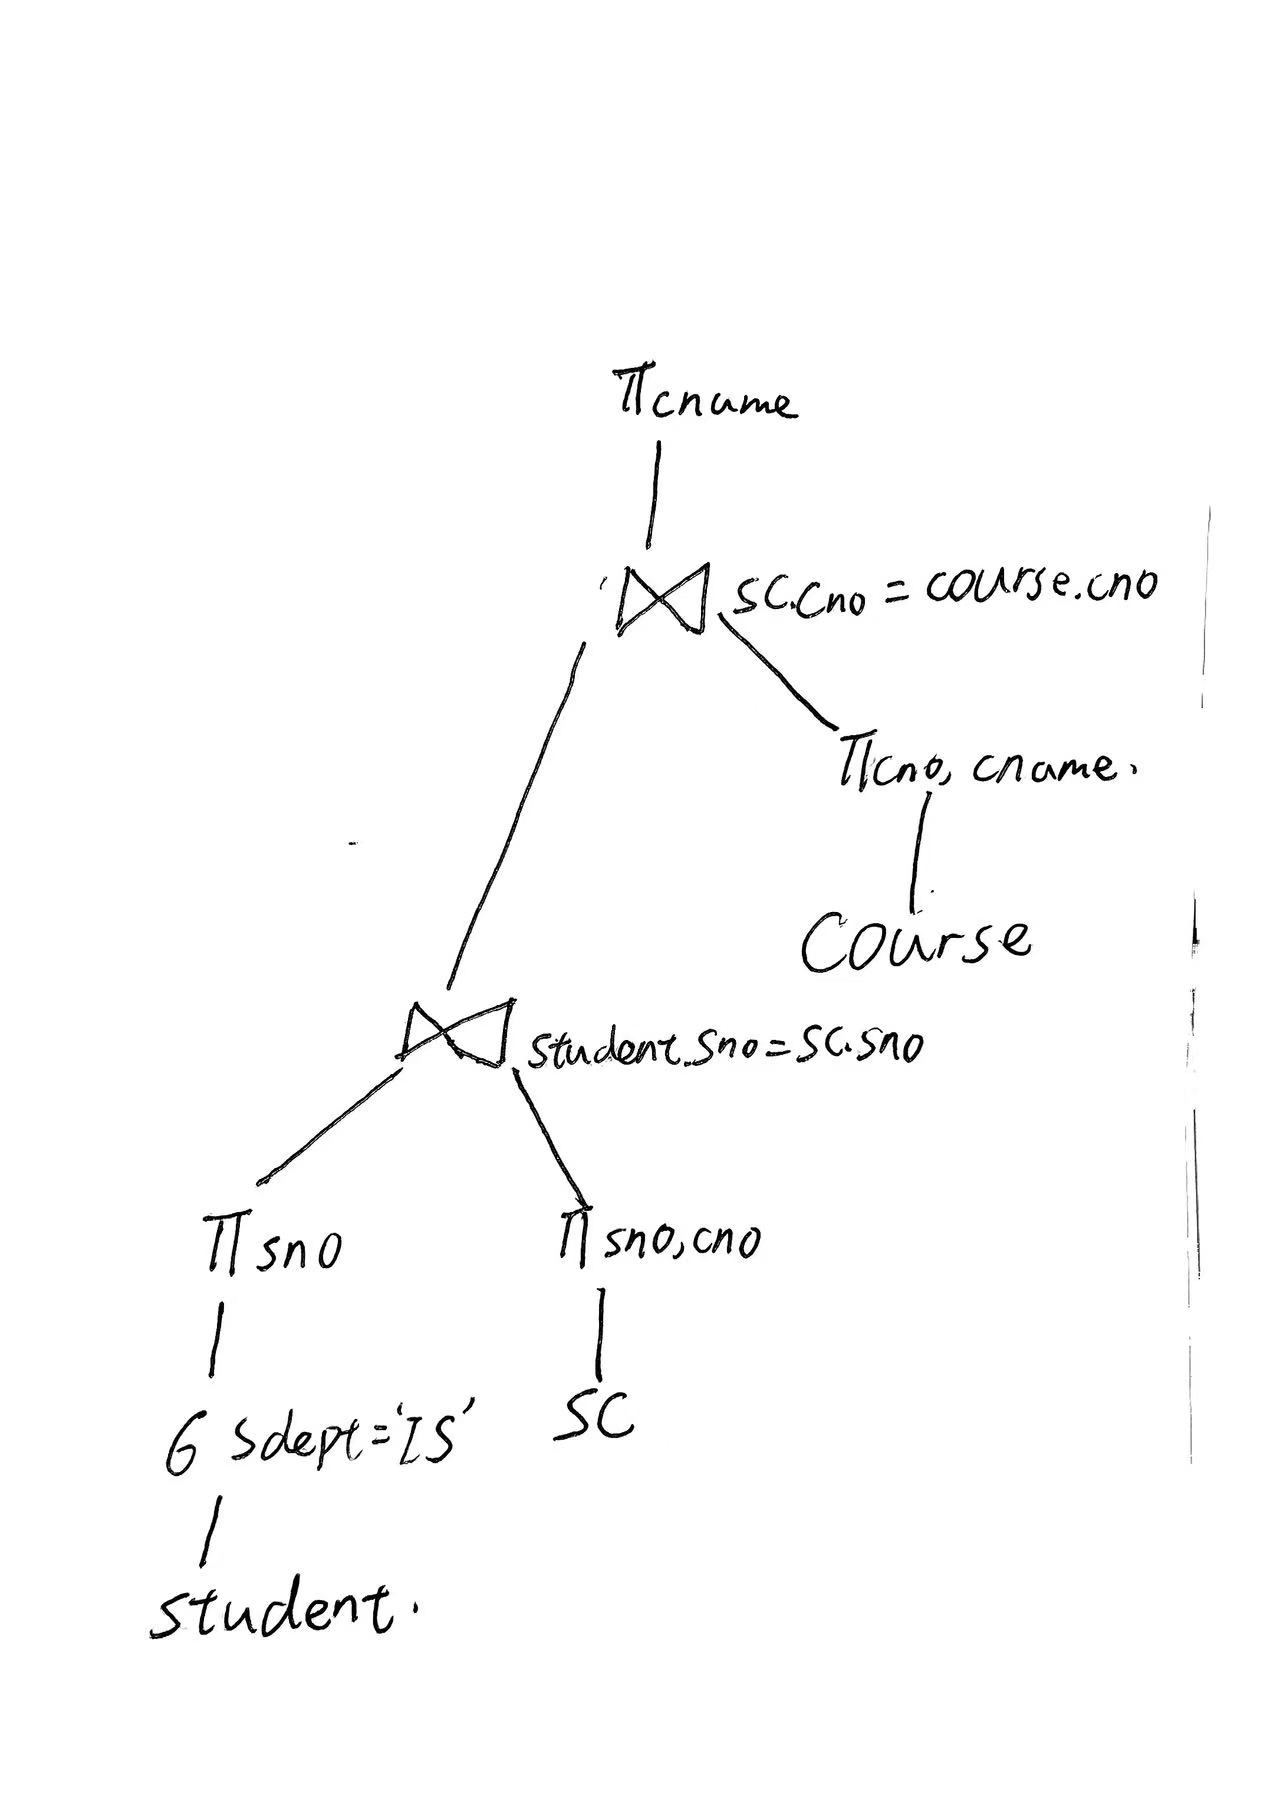 π cname
⋈ SC.Cno = course.cno
π cno, cname.
Course
⋈ student.Sno = SC.Sno
π sno
π sno, cno
σ Sdept = 'IS'
SC
student.